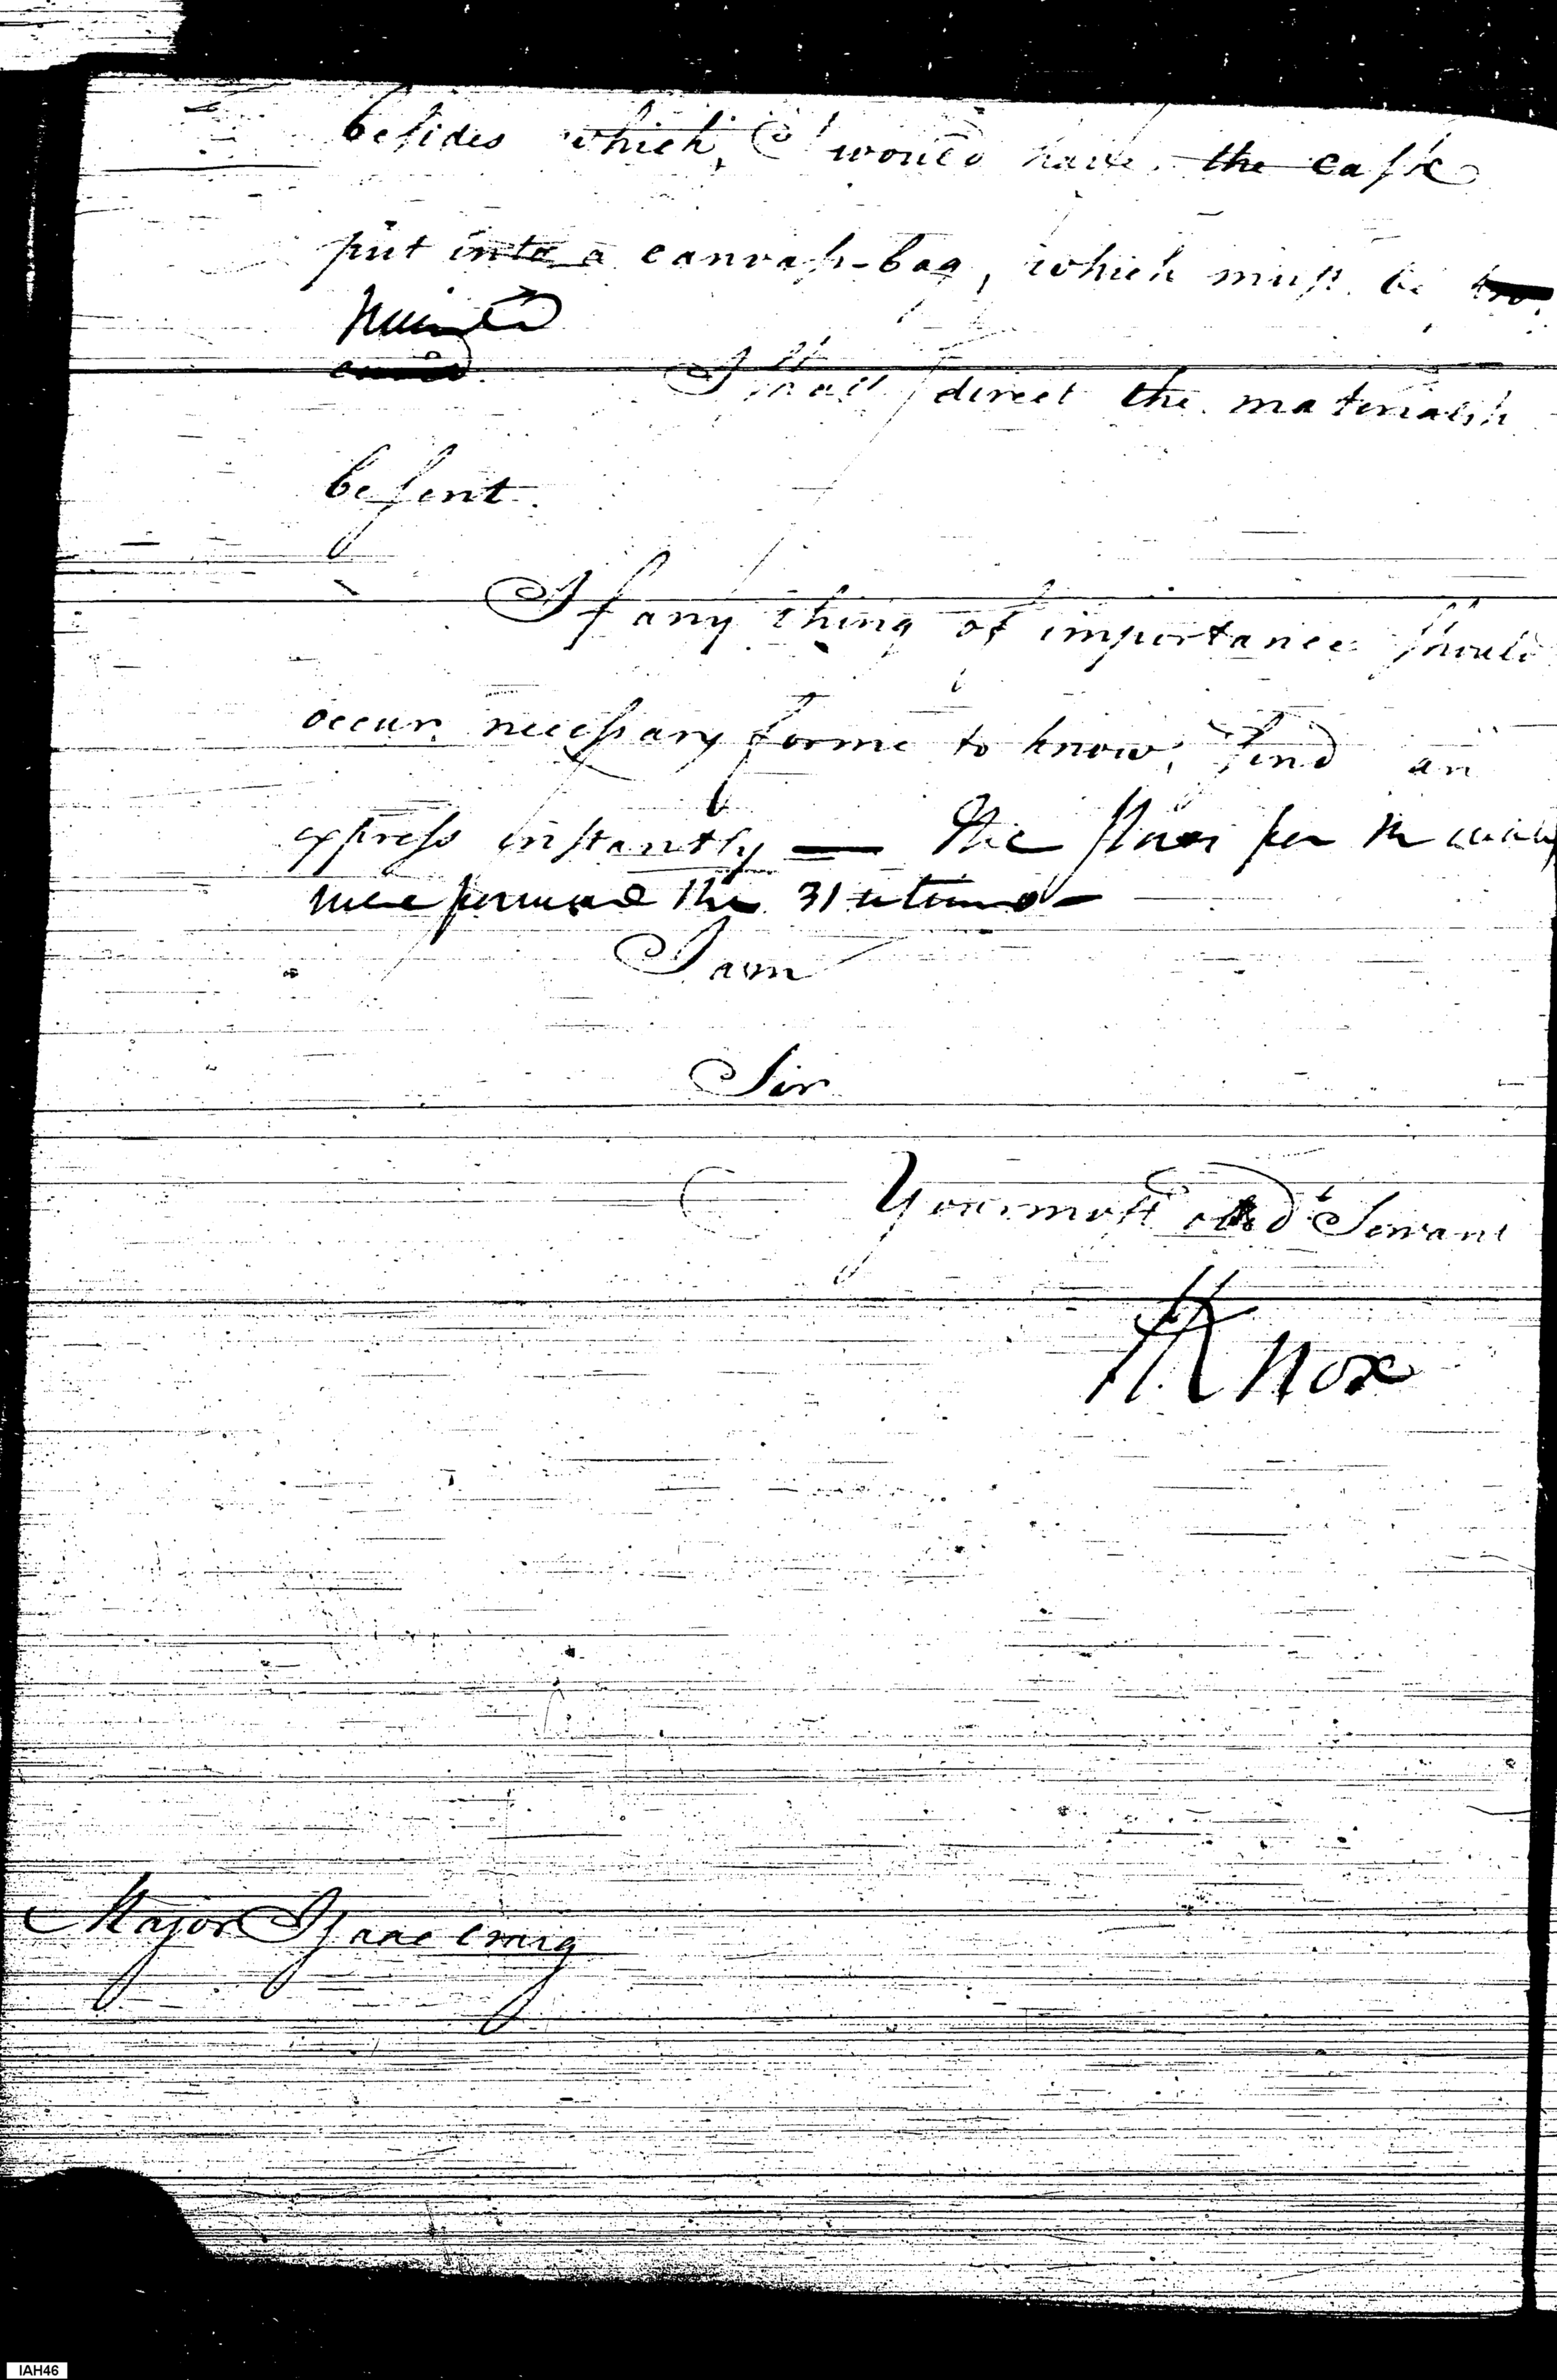 besides which, I would have the cask
put into a canvass-bag, which must be
painted
I shall direct the materials
be sent.
If any thing of importance should
occur necessary for me to know, send an
express instantly — The stores for the
were forward the 31 ultimo —
I am
Sir
Your most obed.t Servant
HKnox
Major Isaac Craig
IAH46